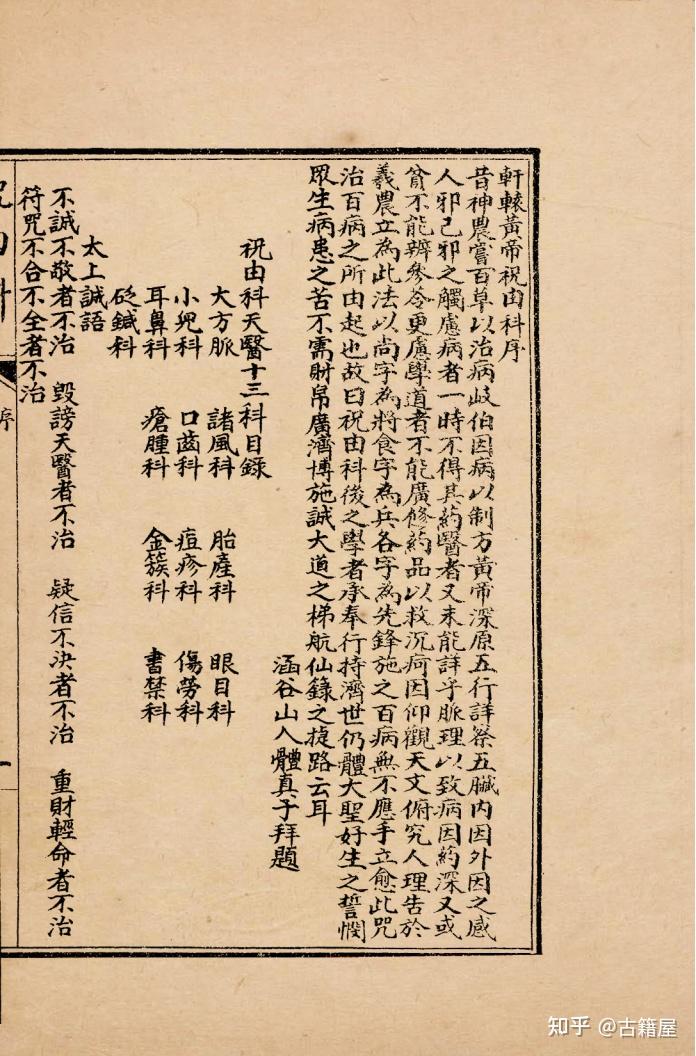 軒轅黃帝祝由科序
昔神農嘗百草以治病歧伯因病以制方黃帝深原五行詳察五臟內因外因之感
人邪己邪之觸慮病者一時不得其药醫者又未能詳乎脈理以致病因药深又或
貧不能辨參苓更慮學道者不能廣修药品以救沉疴因仰觀天文俯究人理告於
義農立為此法以尚字為將食字為兵各字為先鋒施之百病無不應手立愈此咒
治百病之所由起也故曰祝由科後之學者承奉行持濟世仍體大聖好生之誓憫
眾生病患之苦不需財帛廣濟博施誠大道之梯航仙錄之捷路云耳
涵谷山人體真子拜題
祝由科天醫十三科目錄
大方脈 諸風科 胎產科 眼目科
小兒科 口齒科 痘疹科 傷勞科
耳鼻科 瘡腫科 金簇科 書禁科
砭鍼科
太上誠語
不誠不敬者不治 毀謗天醫者不治 疑信不決者不治 重財輕命者不治
符咒不合不全者不治
序
一
知乎 @古籍屋